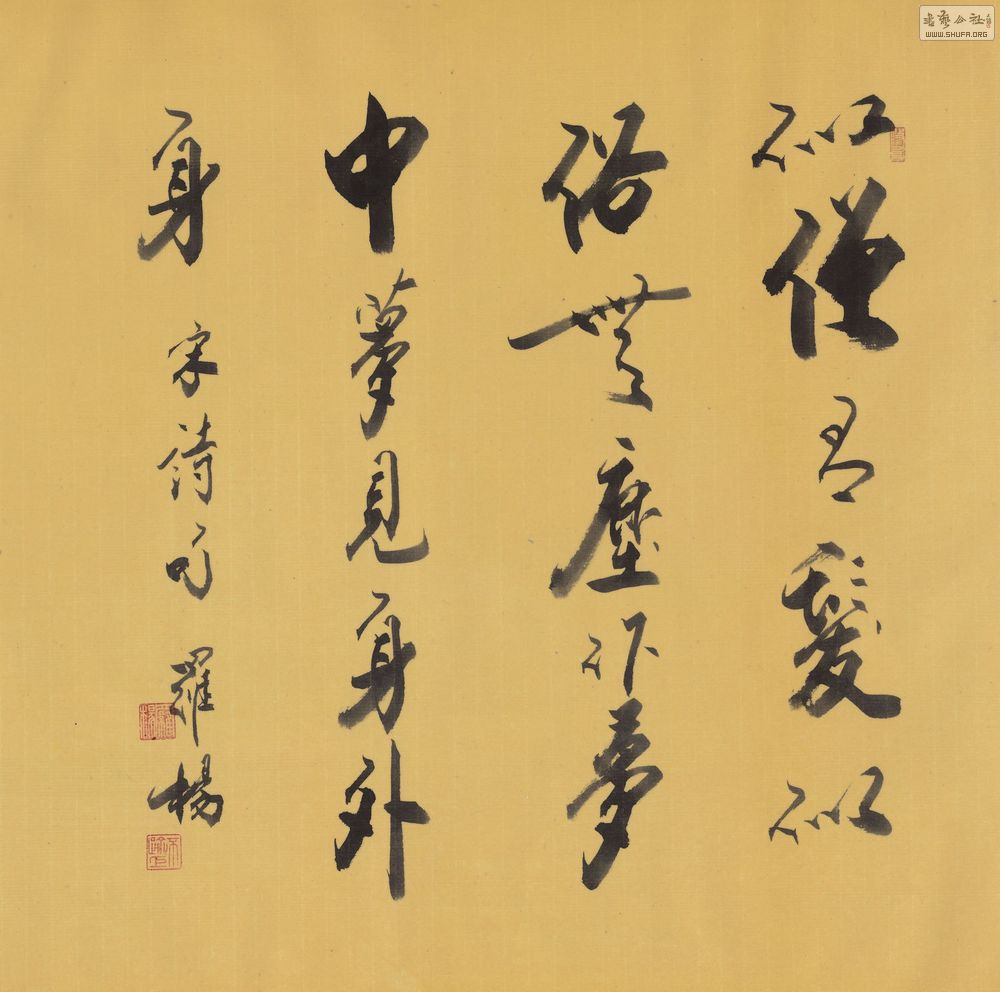 似僧有髮似
俗無塵作夢
中夢見身外
身 宋詩句 羅楊
書藝公社
WWW.SHUFA.ORG